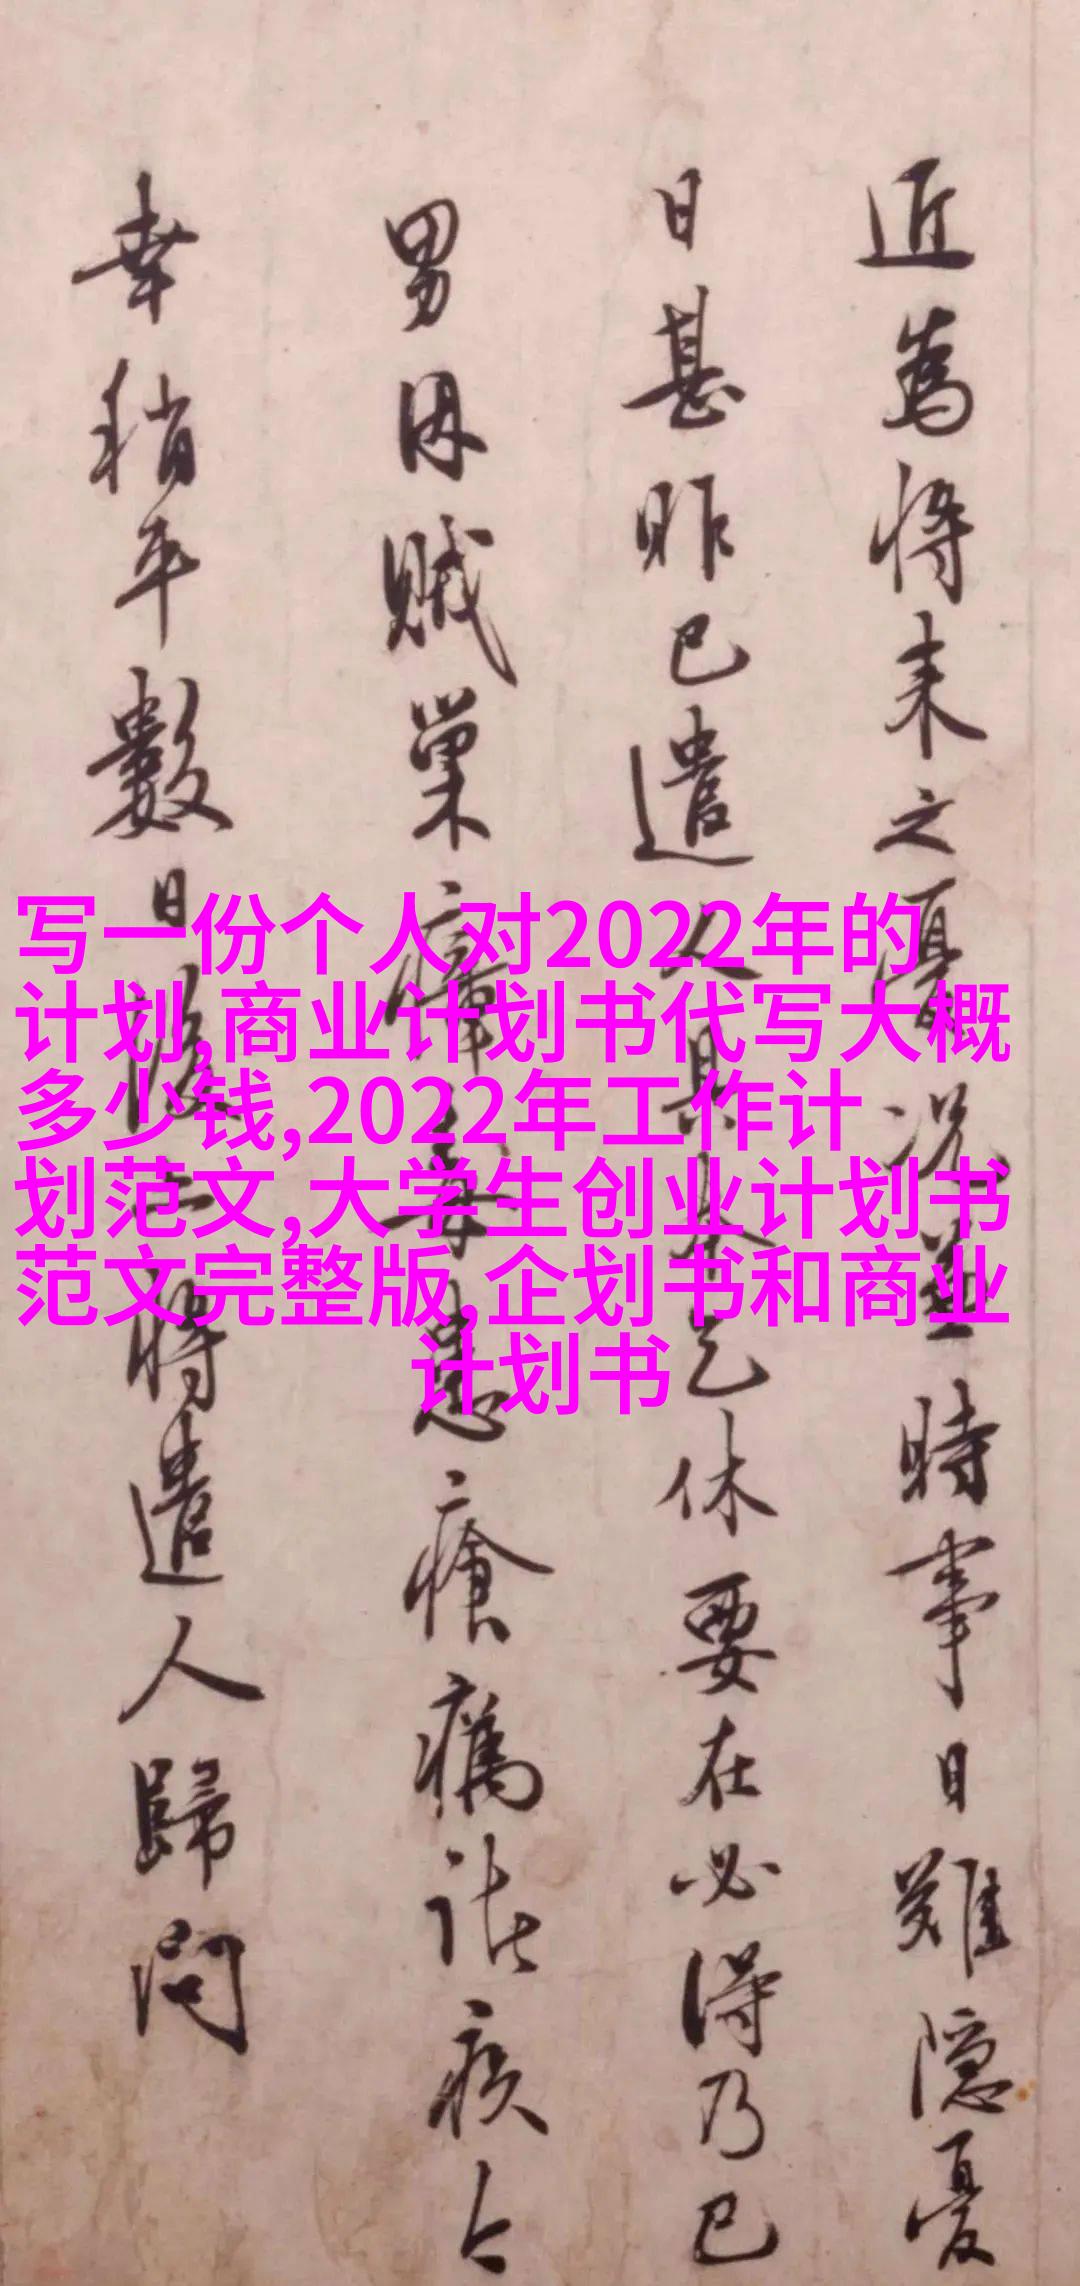 近為將來之憂況並時事日難隱憂
日甚昨已遣人具本乞休要在必得乃已
男因賊巢瘴毒患瘡癘諸疾今
幸稍平數日後亦將遣人歸問
写一份个人对2022年的
计划,商业计划书代写大概
多少钱,2022年工作计
划范文,大学生创业计划书
范文完整版,企划书和商业
计划书